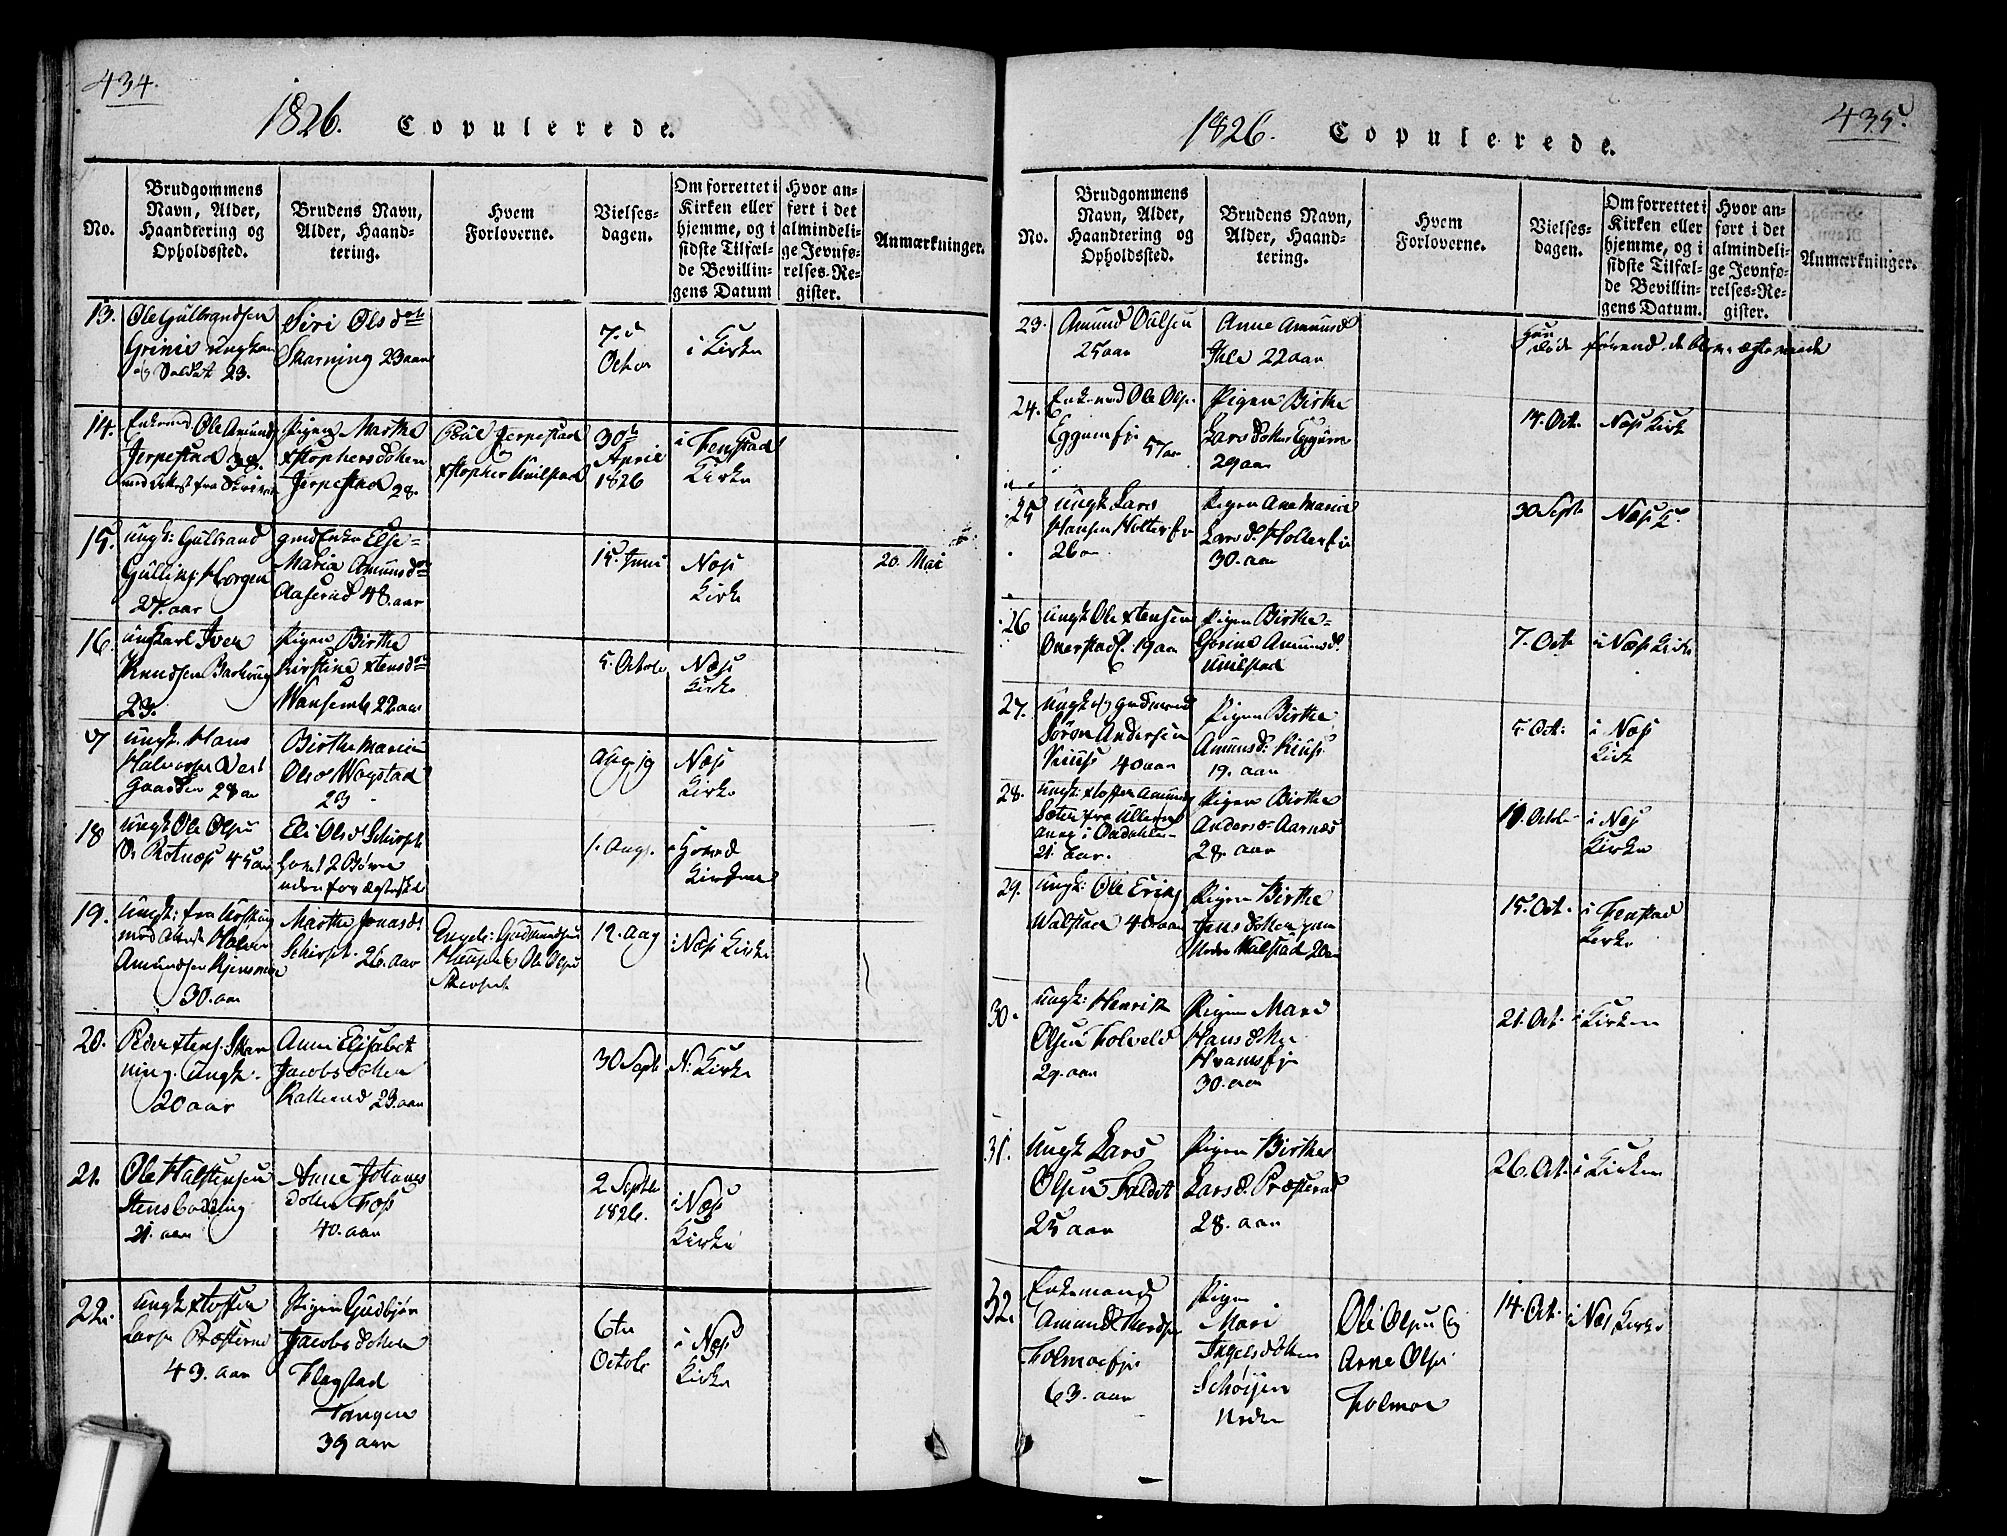 434.
1826. Copulerede.
No.
Brudgommens Navn, Alder, Haandtering og Opholdssted.
Brudens Navn, Alder, Haandtering.
Hvem Forloverne.
Vielses-dagen.
Om forrettet i Kirken eller hjemme, og i sidste Tilfælde Bevillingens Datum
Hvor anført i det almindelige Jevnførelses-Register.
Anmærkninger.
13. Ole Gulbrandsen
Grinie ungkar
og Soldat 23.
Siri Olsd
Skarning 23 aar
7.d
Octbr
i Kirke
14. Enkemd Ole Amunds
Jerpestad
Pigen Martha
xstophersdotter
Jerpestad 28.
Poul Jerpestad
xstopher Huilstad
30
April
1826
i Fenstad
Kirke
15. ungk: Gulbrand
Gullins: Horgen
27. aar
gmd Enke Else
Maria Amunds
Aaserud 48. aar
15. Juni
Næs
Kirke
20. Mai
16. ungkarl Iver
Knudsen
23.
Pigen Birthe
Kirstine xtensd
Hansemb 22 aar
5. Octob
Næs
Kirke
ungk. Hans
Halvorsen Vest
Gaarden 28 aar
Birthe Maria
Olsd Wogstad
29
Næs
Kirke
18 ungk Ole Olsen
Rotnæs 45 aar
Eli Olsd Skirsth
havt 2 Børn
uden for ægteskb
1. Aug.
Kirke
19. ungk: fra
med Halvor
Amundsen
30. aar
Marthe Jonasd
26. aar
Engel: Gudmundsen
Ole Olsen
12. Aug
i Næs Kirke
20. Peder xtens: Skar
ning. ungk.
20 aar
Anne Elisabet
Jacobsdotter
Kallerud 23. aar
30 Septb
N: Kirke
21. Ole Halstensen
Stensbodding
21. aar
Anne Johannes
dotter Fos
40. aar
2 Septbr
1826.
i Næs
Kirke
22. ungk xtoffer
Larsen Præsterud
43. aar
Pigen Gudbjør
Jacobsdotter
Flagstad
Tangen
39 aar
6te
Octobr
i Næs
Kirke
435.
1826. Copulerede.
No.
Brudgommens Navn, Alder, Haandtering og Opholdssted.
Brudens Navn, Alder, Haandtering.
Hvem Forloverne.
Vielses-dagen.
Om forrettet i Kirken eller hjemme, og i sidste Tilfælde Bevillingens Datum.
Hvor anført i det almindelige Jevnførelses-Register.
Anmærkninger.
23. Amund Oulsen
25 aar
Anne Amunsd
Ihle 22 aar
Hun
døde førend de bleve ægteviede
24. Enkemd Ole Ols:
Eggum
57 aar
Pigen Birthe
Larsdotter Eggum
29 aar
14. Oct.
Næs Kirk
25 ungk Lars
Hansen Holter
26 aar
Pigen Ane Maria
Larsd. Holter
30. aar
30 Septb
Næs K
26 ungk Ole xtensen
Overstad 19 aar
Pigen Birthe
Gorine Amunsd.
Huilstad
7. Oct
i Næs Kirke
27. ungk og gadmand
Søren Andersen
Kiuus 40 aar
Pigen Birthe
Amunsd: Kiuus
19. aar
5. Oct:
i Næs
Kirk
28. ungk: xtoffer Amunds
Sæter fra Ullens
ang i Oudalen
21 aar.
Pigen Birthe
Andersd Aarnæs
28. aar
Octb
i Næs
Kirke
29. ungk: Ole Eriks
Walstad 40 aar
Pigen Birthe
Jensdotter
Walstad 20 aar
15. Oct.
i Fenstad
Kirke
30. ungk: Henrik
Olsen Folveld
29. aar
Pigen Mare
Hansdotter
Hvamsej
30. aar
21. Oct.
i Kirken
31. ungk Lars
Olsen Faldet
25 aar
Pigen Birthe
Larsd. Præsterud
28. aar
26. Oct.
i Kirken
32. Enkemand
Amund
Folmoe
63. aar
Pigen
Mari
Ingelsdotter
Schøyen
Nedre
Ole Olsen og
Arne Olsen
Folmoe
14. Oct.
i Næs Kirke